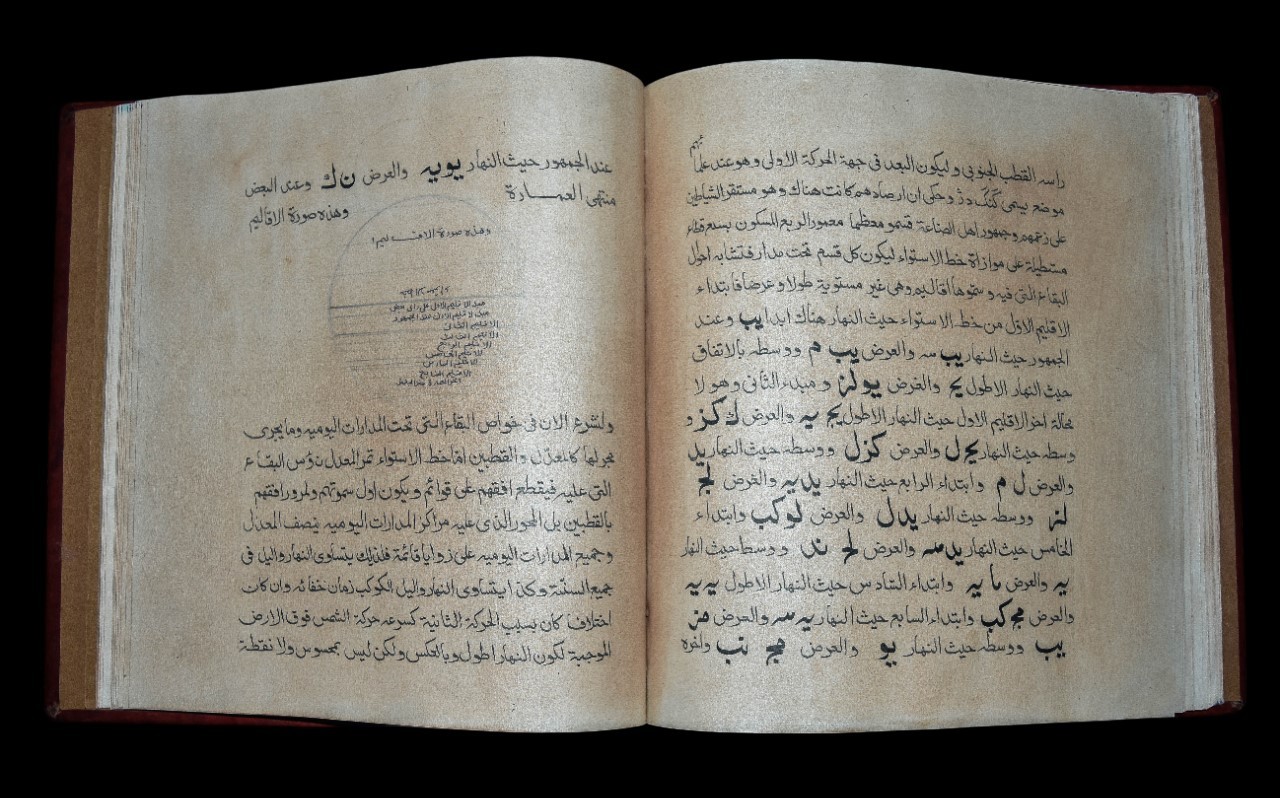 راسه القطب الجنوبي وليكون البعد في جهة الحركة الاولى وهو عند علما
ئهم
موضع يسمى كنگ دژ وحكى ان ارصادهم كانت هناك وهو مستقر الشياطين
على زعمهم وجمهور اهل الصناعة قسمو معظمها معمور الربع المسكون بسبع قطاع
مستطيلة على موازاة خط الاستواء ليكون كل قسم تحت مدار فتشابه احوال
البقاع التى فيه وسموها اقاليم وهى غير مستوية طولا وعرضا فابتداء
الاقليم الاول من خط الاستواء حيث النهار هناك ابدا يب وعند
الجمهور حيث النهار يب مه والعرض يب م ووسطه بالاتفاق
حيث النهار الاطول يح والعرض يو لز ومبداء الثانى وهو لا
محالة اخر الاقليم الاول حيث النهار الاطول يج يه والعرض ك كز و
وسطه حيث النهار يج ل والعرض كز ل ووسطه حيث النهار يد
والعرض ل م وابتداء الرابع حيث النهار يد يه والعرض لج
لز ووسطه حيث النهار يد ل والعرض لو كب وابتداء
الخامس حيث النهار يد مه والعرض لح ند ووسط حيث النهار
يه والعرض ما يه وابتداء السادس حيث النهار الاطول يه يه
والعرض مج كب وابتداء السابع حيث النهار يه مه والعرض مز
يب ووسطه حيث النهار يو والعرض مح نب واخره
عند الجمهور حيث النهار يو يه والعرض ن ك وعند البعض
منتهى العمارة
وهذه صورة الاقاليم
وهذه صورة الاقاليم
مبداء الاقليم الاول على راى
مبداء الاقليم الاول عند الجمهور
الاقليم الثانى
الاقليم الثالث
الاقليم الرابع
الاقليم الخامس
الاقليم السادس
الاقليم السابع
ولنشرع الان فى خواص البقاع التى تحت المدارات اليوميه وما يجرى
مجراها كالمعدل والقطبين اما خط الاستواء تمر المعدل برؤس البقاع
التى عليه فيقطع افقهم على قوائم ويكون اول سموتهم ولمرور افقهم
بالقطبين بل المحور الذى عليه مراكز المدارات اليوميه ينصف المعدل
وجميع المدارات اليوميه على زوايا قائمة فلذلك يتساوى النهار واليل فى
جميع السنة وكذا يتساوى النهار واليل الكوكب زمان خفائه وان كان
اختلاف كان بسبب الحركة الثانية كسرعه حركة الشمس فوق الارض
الموجبة لكون النهار اطول وبالعكس ولكن ليس بمحسوس ولا نقطة